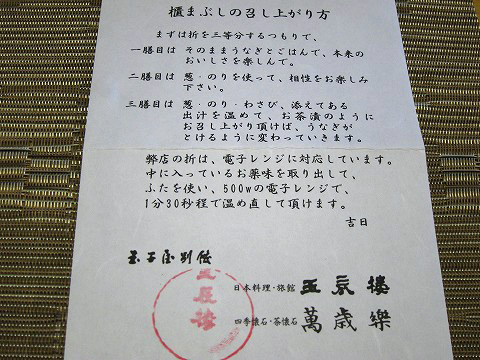 櫃まぶしの召し上がり方
まずは折を三等分するつもりで、
一膳目は そのままうなぎとごはんで、本来の
おいしさを楽しんで。
二膳目は 葱・のりを使って、相性をお楽しみ
下さい。
三膳目は 葱・のり・わさび、添えてある
出汁を温めて、お茶漬のように
お召し上がり頂けば、うなぎが
とけるように変わっていきます。
弊店の折は、電子レンジに対応しています。
中に入っているお薬味を取り出して、
ふたを使い、500wの電子レンジで、
1分30秒程で温め直して頂けます。
吉日
日本料理・旅館 玉辰樓
四季懐石・茶懐石 萬歳樂